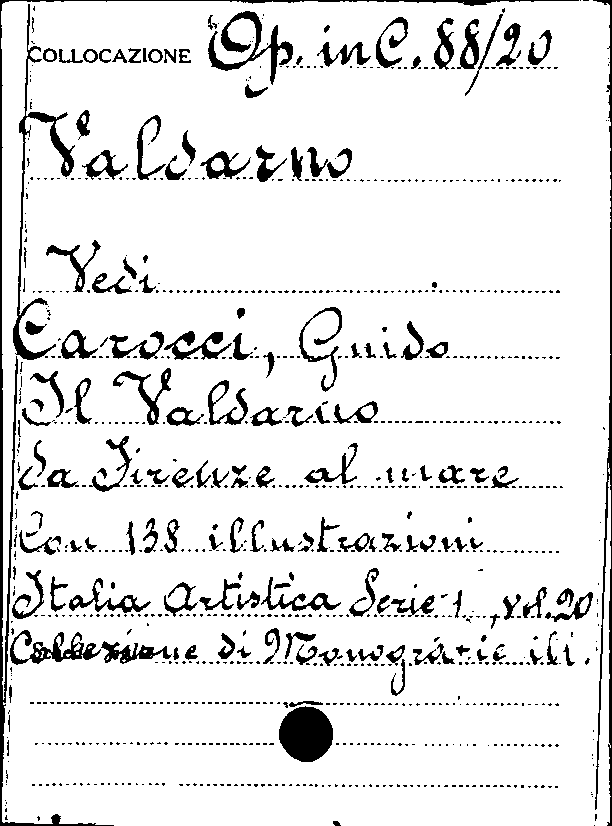 COLLOCAZIONE Op. in C. 88/20
Valdarno
Vedi
Carocci, Guido
Il Valdarno
da Firenze al mare
Con 138 illustrazioni
Italia Artistica Serie 1, vol. 20
Collezione di Monografie ill.